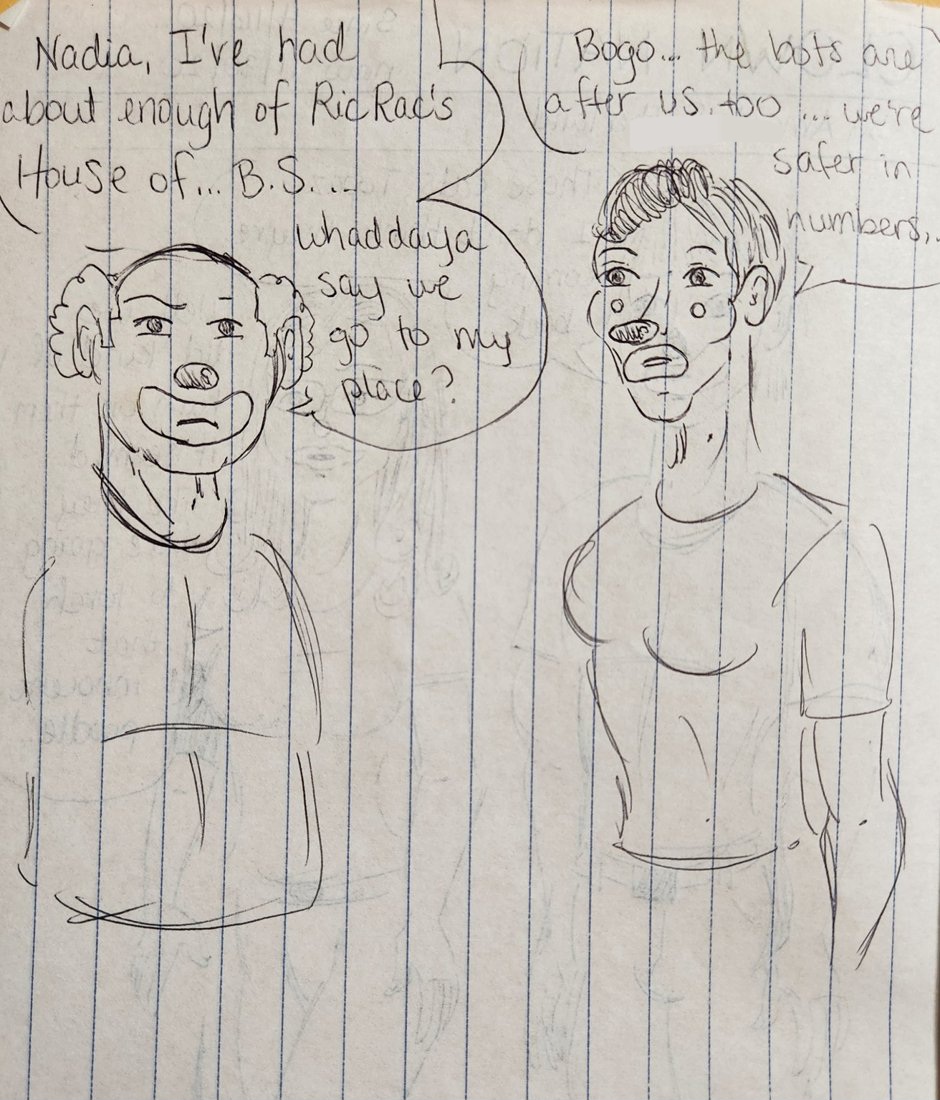 Nadia, I've had
about enough of RicRac's
House of... B.S....
whaddaya
say we
go to my
place?
Bogo... the bots are
after us too ... we're
safer in
numbers...